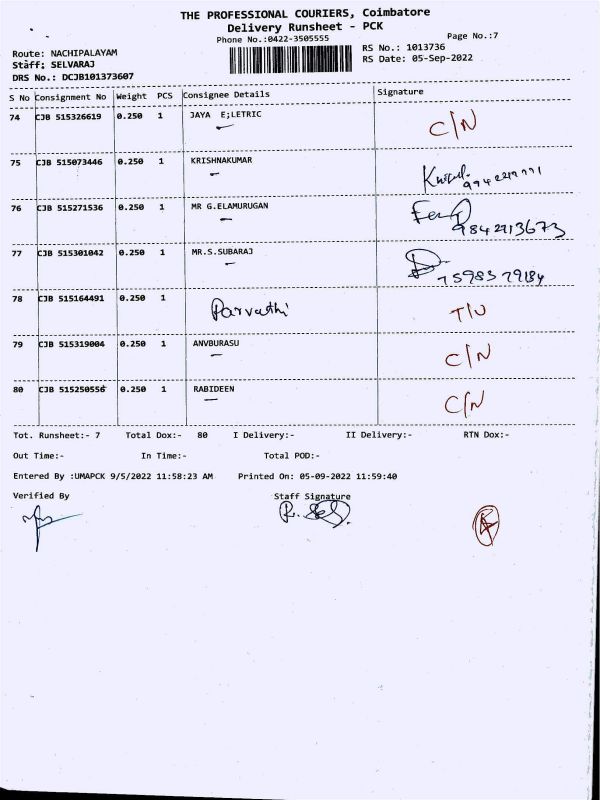 THE PROFESSIONAL COURIERS, Coimbatore
Delivery Runsheet - PCK
Phone No.:0422-3505555
Page No.:7
Route: NACHIPALAYAM
RS No.: 1013736
Staff: SELVARAJ
RS Date: 05-Sep-2022
DRS No.: DCJB101373607
S No Consignment No Weight PCS Consignee Details Signature
74 CJB 515326619 0.250 1 JAYA E;LETRIC C/N
75 CJB 515073446 0.250 1 KRISHNAKUMAR
76 CJB 515271536 0.250 1 MR G.ELAMURUGAN 9842213673
77 CJB 515301042 0.250 1 MR.S.SUBARAJ 7598379184
78 CJB 515164491 0.250 1 Parvathi T/U
79 CJB 515319004 0.250 1 ANVBURASU C/N
80 CJB 515250556 0.250 1 RABIDEEN C/N
Tot. Runsheet:- 7 Total Dox:- 80 I Delivery:- II Delivery:- RTN Dox:-
Out Time:- In Time:- Total POD:-
Entered By :UMAPCK 9/5/2022 11:58:23 AM Printed On: 05-09-2022 11:59:40
Verified By Staff Signature